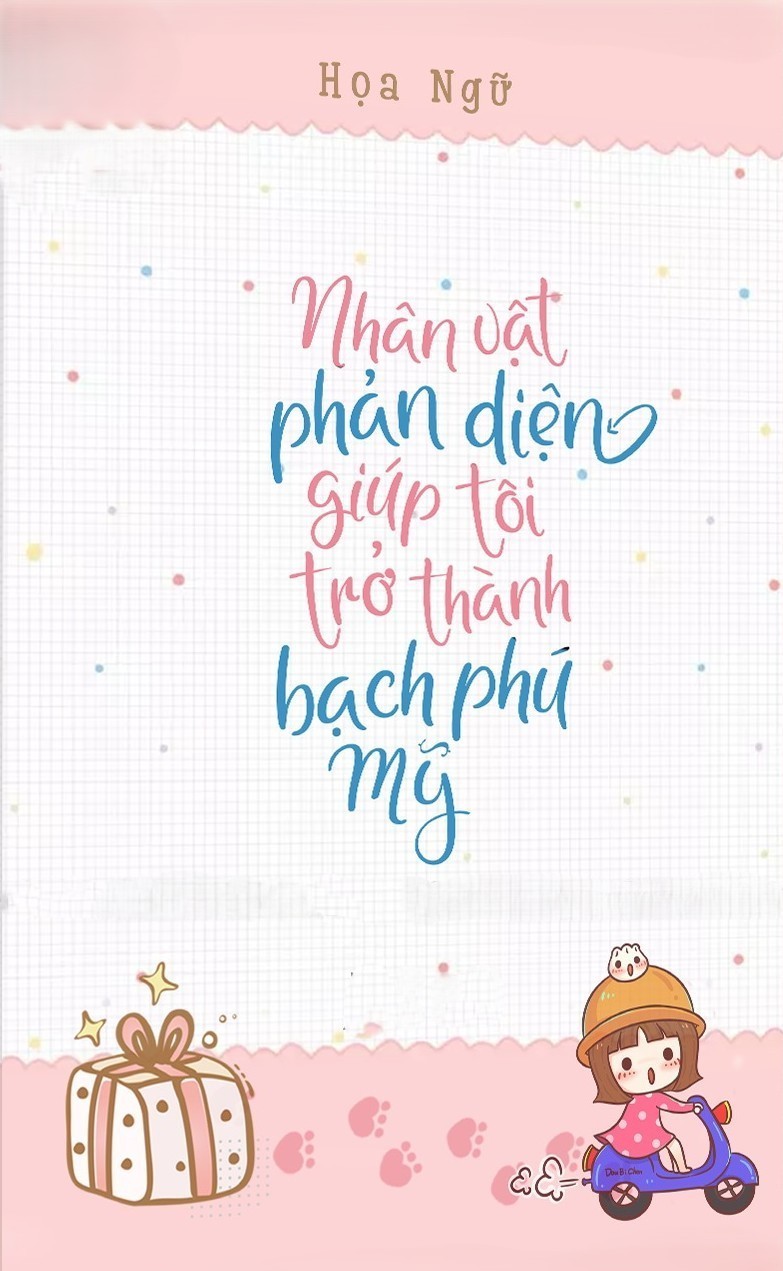 Họa Ngữ
Nhân vật
phản diện
giúp tôi
trở thành
bạch phú
mỹ